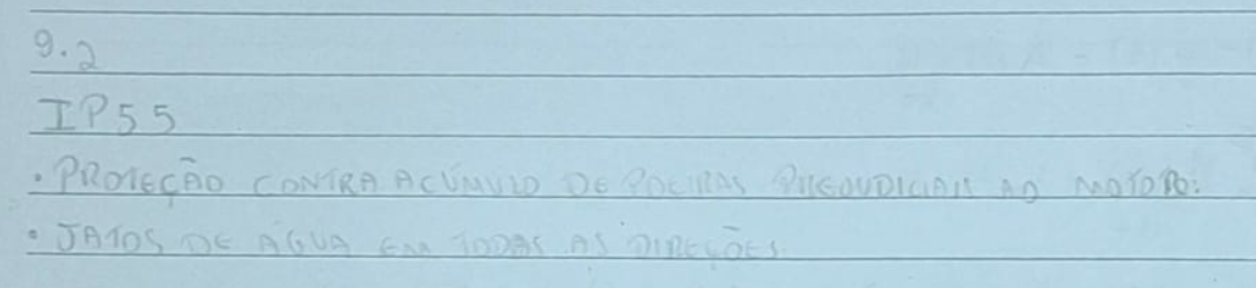 9.2
IP55
• PROTEÇÃO CONTRA ACÚMULO DE POEIRAS PREJUDICIAIS AO MOTOR.
• JATOS DE ÁGUA EM TODAS AS DIREÇÕES.